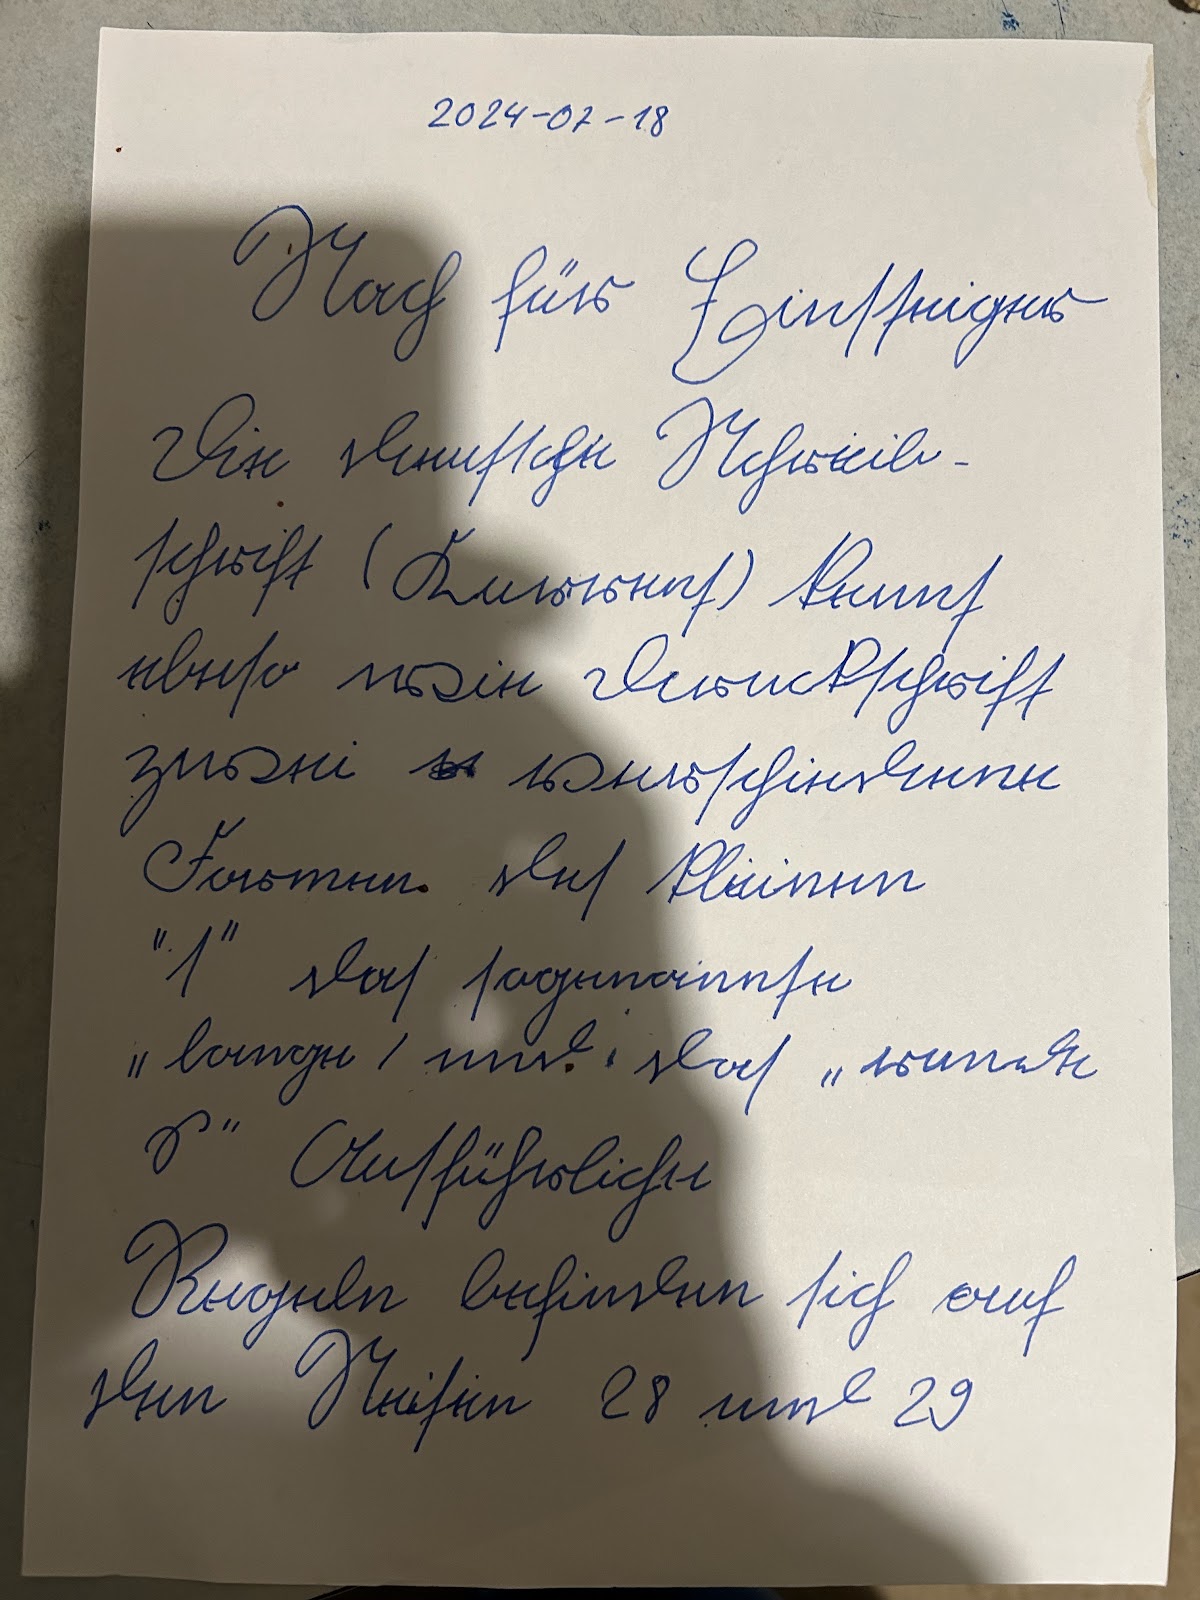 2024-07-18
Sach für Einsteiger
Die deutsche Schreib-
schrift (Kurrent) kennt
ebenso wie Druckschrift
zwei verschiedene
Formen des kleinen
"s" das sogenannte
„lange s und das „runde
s“ Ausführliche
Regeln befinden sich auf
den Seiten 28 und 29